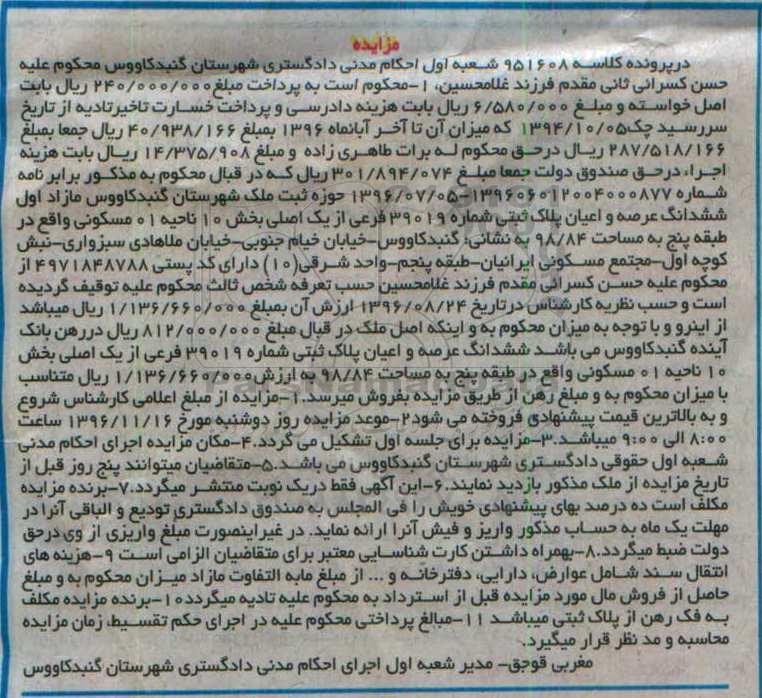 مزایده
درپرونده کلاسه ۹۵۱۶۰۸ شعبه اول احکام مدنی دادگستری شهرستان گنبدکاووس محکوم علیه
حسن کسرائی ثانی مقدم فرزند غلامحسین، ۱-محکوم است به پرداخت مبلغ۲۴۰/۰۰۰/۰۰۰ ریال بابت
اصل خواسته و مبلغ ۶/۵۸۰/۰۰۰ ریال بابت هزینه دادرسی و پرداخت خسارت تاخیرتادیه از تاریخ
سررسید چک۱۳۹۴/۱۰/۰۵ که میزان آن تا آخر آبانماه ۱۳۹۶ بمبلغ ۴۰/۹۳۸/۱۶۶ ریال جمعا بمبلغ
۲۸۷/۵۱۸/۱۶۶ ریال درحق محکوم له برات طاهری زاده و مبلغ ۱۴/۳۷۵/۹۰۸ ریال بابت هزینه
اجرا، درحق صندوق دولت جمعا مبلغ ۳۰۱/۸۹۴/۰۷۴ریال که در قبال محکوم به مذکور برابر نامه
شماره ۱۳۹۶۰۶۰۱۲۰۰۴۰۰۰۸۷۷-۱۳۹۶/۰۷/۰۵ حوزه ثبت ملک شهرستان گنبدکاووس مازاد اول
ششدانگ عرصه و اعیان پلاک ثبتی شماره ۳۹۰۱۹ فرعی از یک اصلی بخش ۱۰ ناحیه ۰۱ مسکونی واقع در
طبقه پنج به مساحت ۹۸/۸۴ به نشانی: گنبدکاووس-خیابان خیام جنوبی-خیابان ملاهادی سبزواری-نبش
کوچه اول-مجتمع مسکونی ایرانیان-طبقه پنجم-واحد شرقی(۱۰) دارای کد پستی ۴۹۷۱۸۴۸۷۸۸ از
محکوم علیه حسن کسرائی مقدم فرزند غلامحسین حسب تعرفه شخص ثالث محکوم علیه توقیف گردیده
است و حسب نظریه کارشناس درتاریخ ۱۳۹۶/۰۸/۲۴ ارزش آن بمبلغ ۱/۱۳۶/۶۶۰/۰۰۰ ریال میباشد
از اینرو و با توجه به میزان محکوم به و اینکه اصل ملک در قبال مبلغ ۸۱۲/۰۰۰/۰۰۰ ریال دررهن بانک
آینده گنبدکاووس می باشد ششدانگ عرصه و اعیان پلاک ثبتی شماره ۳۹۰۱۹ فرعی از یک اصلی بخش
۱۰ ناحیه ۰۱ مسکونی واقع در طبقه پنج به مساحت ۹۸/۸۴ به ارزش ۱/۱۳۶/۶۶۰/۰۰۰ ریال متناسب
با میزان محکوم به و مبلغ رهن از طریق مزایده بفروش میرسد.۱-مزایده از مبلغ اعلامی کارشناس شروع
و به بالاترین قیمت پیشنهادی فروخته می شود۲-موعد مزایده روز دوشنبه مورخ ۱۳۹۶/۱۱/۱۶ ساعت
۸:۰۰ الی ۹:۰۰ میباشد.۳-مزایده برای جلسه اول تشکیل می گردد.۴-مکان مزایده اجرای احکام مدنی
شعبه اول حقوقی دادگستری شهرستان گنبدکاووس می باشد.۵-متقاضیان میتوانند پنج روز قبل از
تاریخ مزایده از ملک مذکور بازدید نمایند.۶-این آگهی فقط دریک نوبت منتشر میگردد.۷-برنده مزایده
مکلف است ده درصد بهای پیشنهادی خویش را فی المجلس به صندوق دادگستری تودیع و الباقی آنرا در
مهلت یک ماه به حساب مذکور واریز و فیش آنرا ارائه نماید. در غیراینصورت مبلغ واریزی از وی درحق
دولت ضبط میگردد.۸-بهمراه داشتن کارت شناسایی معتبر برای متقاضیان الزامی است ۹-هزینه های
انتقال سند شامل عوارض، دارایی، دفترخانه و ... از مبلغ مابه التفاوت مازاد میزان محکوم به و مبلغ
حاصل از فروش مال مورد مزایده قبل از استرداد به محکوم علیه تادیه میگردد۱۰-برنده مزایده مکلف
به فک رهن از پلاک ثبتی میباشد ۱۱-مبالغ پرداختی محکوم علیه در اجرای حکم تقسیط، زمان مزایده
محاسبه و مد نظر قرار میگیرد.
مغربی قوجق- مدیر شعبه اول اجرای احکام مدنی دادگستری شهرستان گنبدکاووس